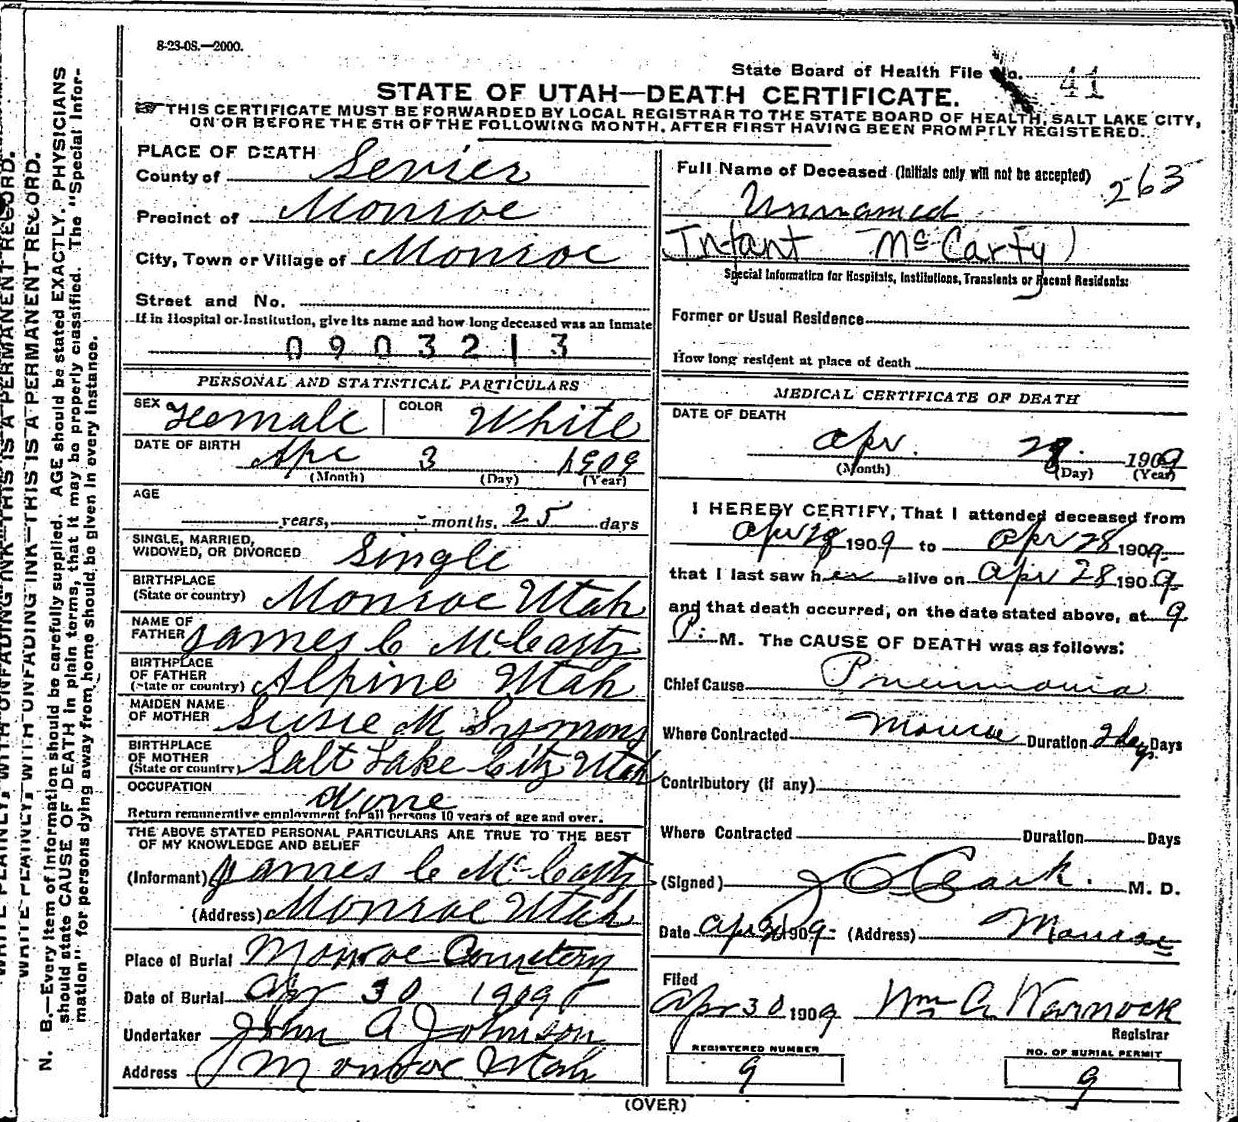 8-23-08.—2000.
State Board of Health File No. 41
STATE OF UTAH—DEATH CERTIFICATE.
☞THIS CERTIFICATE MUST BE FORWARDED BY LOCAL REGISTRAR TO THE STATE BOARD OF HEALTH, SALT LAKE CITY,
ON OR BEFORE THE 5TH OF THE FOLLOWING MONTH, AFTER FIRST HAVING BEEN PROMPTLY REGISTERED.
PLACE OF DEATH
County of Sevier
Precinct of Monroe
City, Town or Village of Monroe
Street and No.
If in Hospital or Institution, give its name and how long deceased was an inmate
0903213
PERSONAL AND STATISTICAL PARTICULARS
SEX Female COLOR White
DATE OF BIRTH Apr 3 1909
(Month) (Day) (Year)
AGE
years, - months, 25 days
SINGLE, MARRIED,
WIDOWED, OR DIVORCED Single
BIRTHPLACE
(State or country) Monroe Utah
NAME OF
FATHER James C McCarty
BIRTHPLACE
OF FATHER
(State or country) Alpine Utah
MAIDEN NAME
OF MOTHER Susie M Symons
BIRTHPLACE
OF MOTHER
(State or country) Salt Lake City Utah
OCCUPATION None
Return remunerative employment for all persons 10 years of age and over.
THE ABOVE STATED PERSONAL PARTICULARS ARE TRUE TO THE BEST
OF MY KNOWLEDGE AND BELIEF
(Informant) James C McCarty
(Address) Monroe Utah
Place of Burial Monroe Cemetery
Date of Burial Apr 30 1909
Undertaker John A Johnson
Address Monroe Utah
Full Name of Deceased (Initials only will not be accepted)
263
Unnamed
Infant McCarty)
Special Information for Hospitals, Institutions, Transients or Recent Residents:
Former or Usual Residence
How long resident at place of death
MEDICAL CERTIFICATE OF DEATH
DATE OF DEATH
Apr. 1909
(Month) (Day) (Year)
I HEREBY CERTIFY, That I attended deceased from
Apr 28 1909 to Apr 28 1909.
that I last saw her alive on Apr 28 1909.
and that death occurred, on the date stated above, at 9
P. M. The CAUSE OF DEATH was as follows:
Chief Cause Pneumonia
Where Contracted Monroe Duration 2 days Days
Contributory (if any)
Where Contracted Duration Days
(Signed) M. D.
Date Apr 1909 (Address) Monroe
Filed
Apr 30 1909 Wm A Warnock
Registrar
REGISTERED NUMBER
9
NO. OF BURIAL PERMIT
9
(OVER)
N. B.—Every item of information should be carefully supplied. AGE should be stated EXACTLY. PHYSICIANS
should state CAUSE OF DEATH in plain terms, that it may be properly classified. The "Special Infor-
mation" for persons dying away from home should be given in every instance.
WRITE PLAINLY, WITH UNFADING INK—THIS IS A PERMANENT RECORD.
WRITE PLAINLY, WITH UNFADING INK—THIS IS A PERMANENT RECORD.